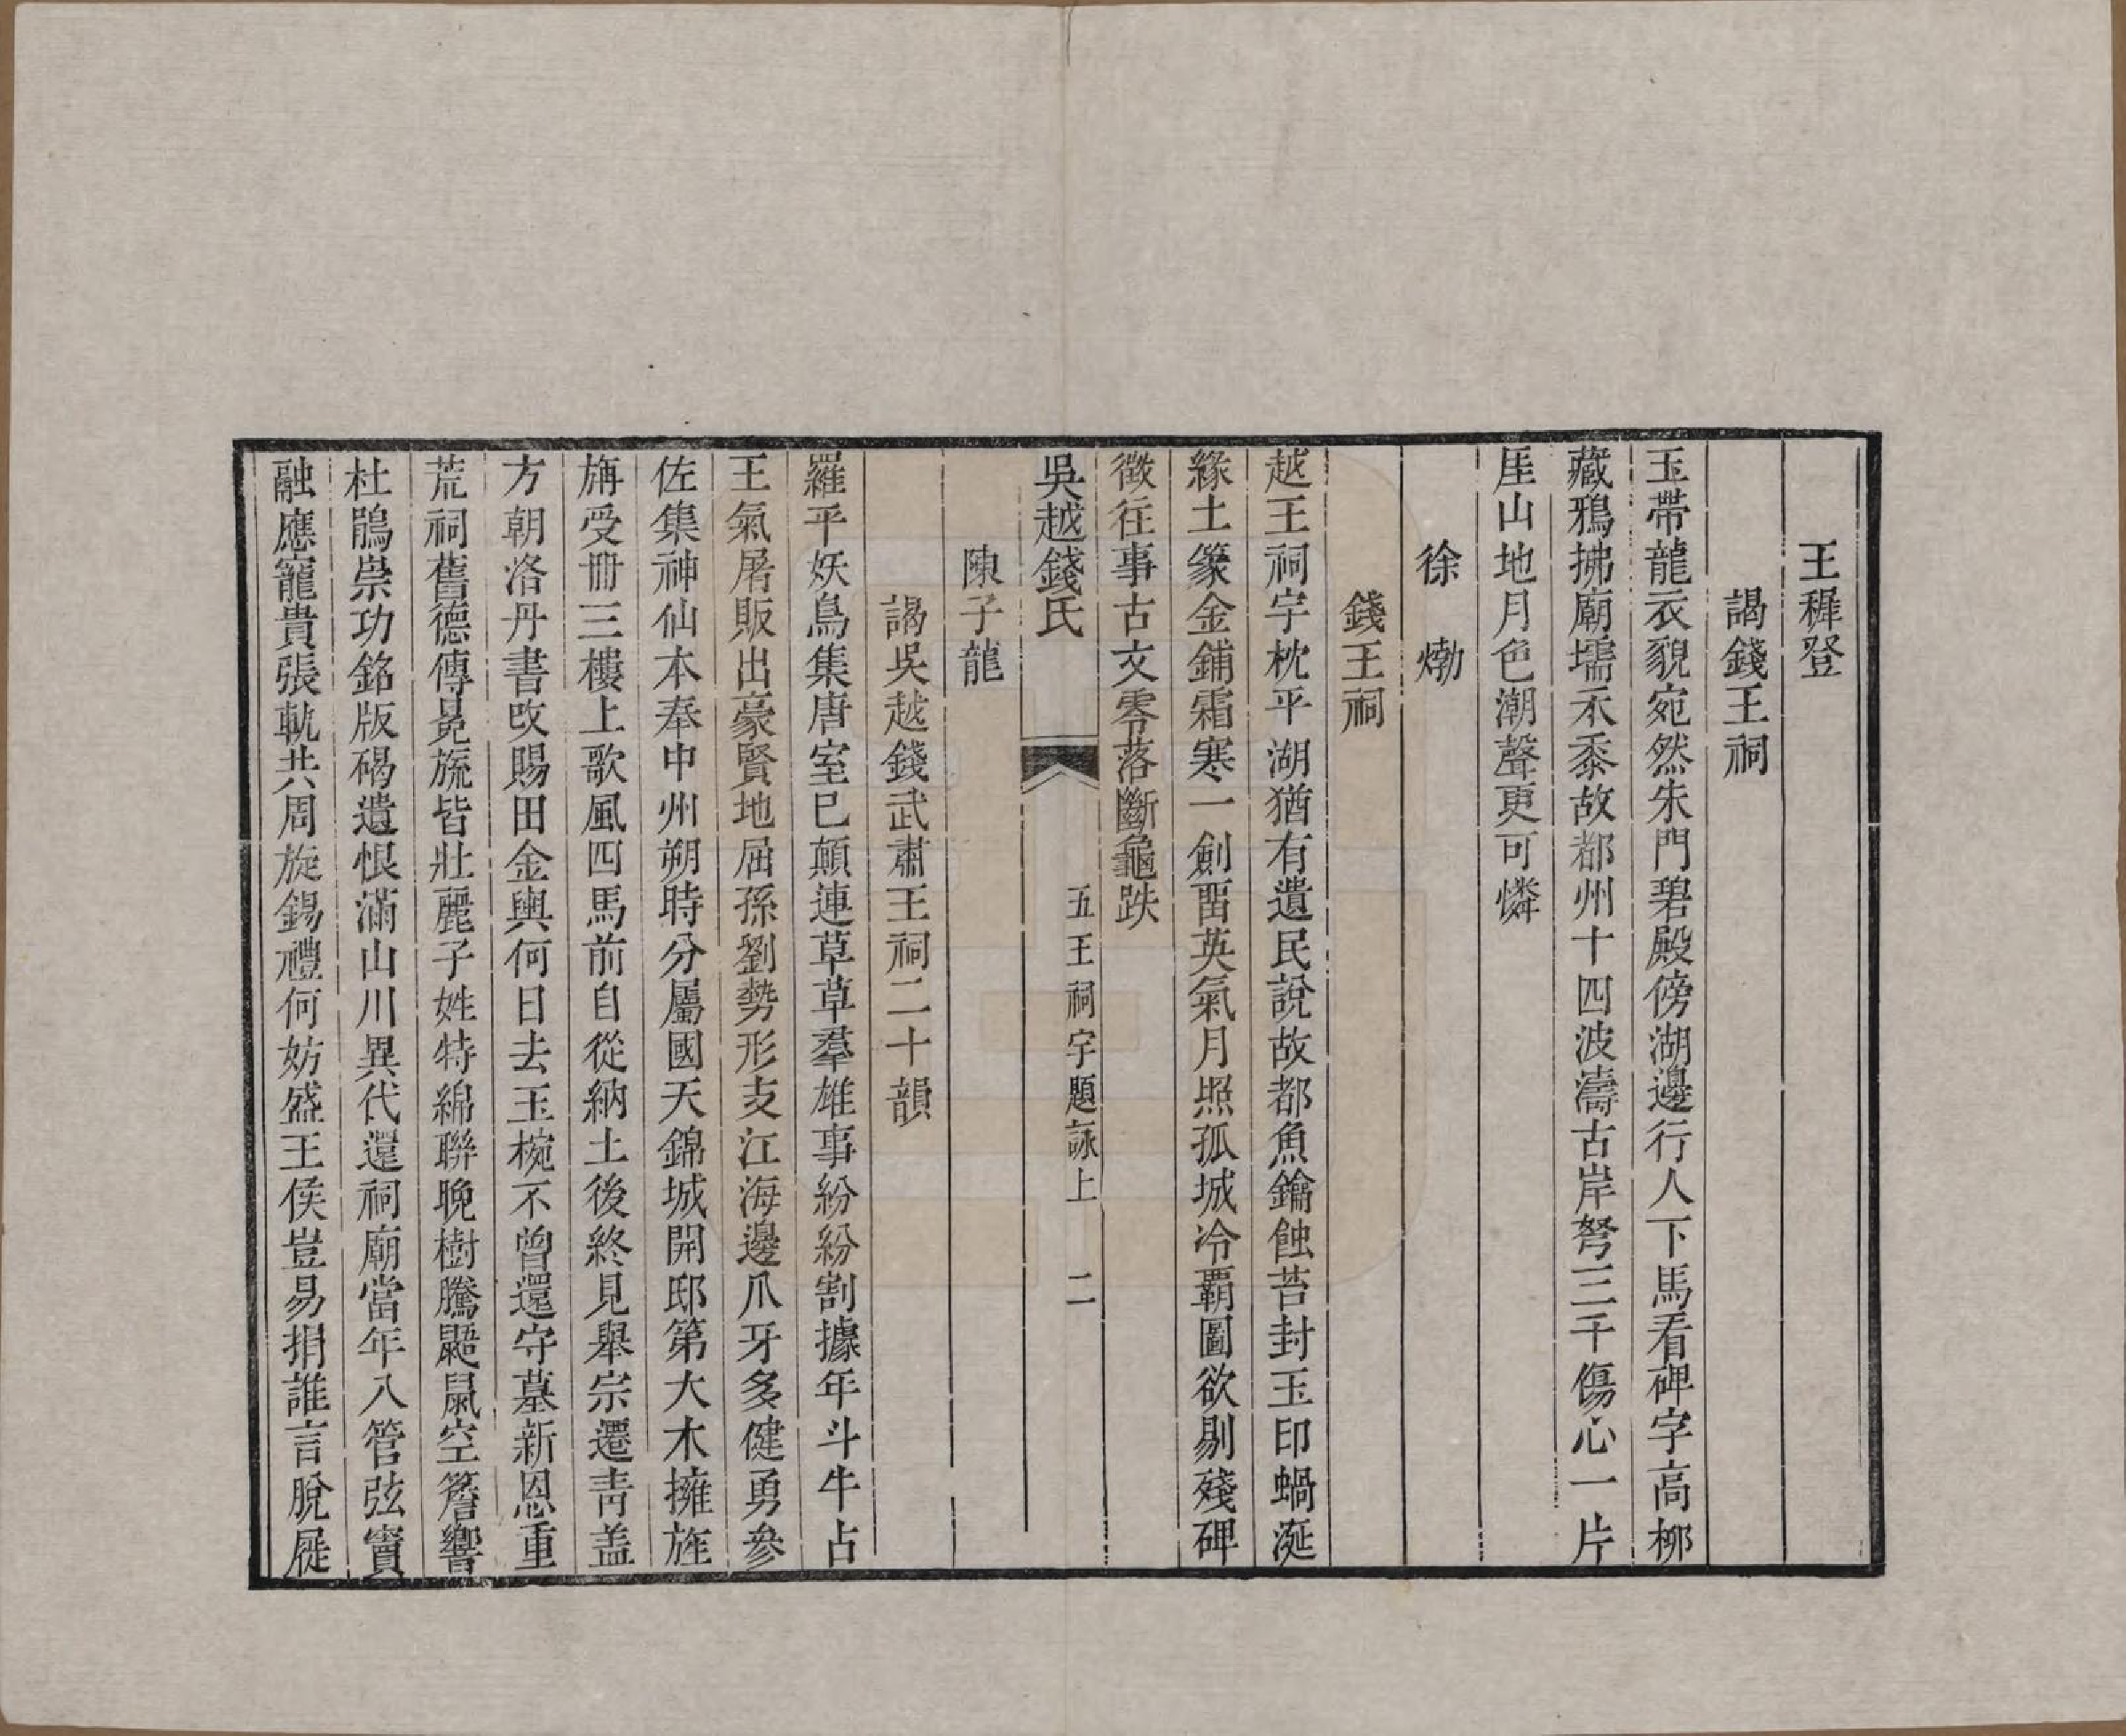 王穉登
謁錢王祠
玉帶龍衣貌宛然朱門碧殿傍湖邊行人下馬看碑字高柳
藏鴉拂廟壖禾黍故都州十四波濤古岸弩三千傷心一片
厓山地月色潮聲更可憐
徐𤊹
錢王祠
越王祠宇枕平湖猶有遺民說故都魚鑰蝕苔封玉印蝸涎
緣土篆金鋪霜寒一劍畱英氣月照孤城冷霸圖欲剔殘碑
徵往事古文零落斷龜趺
吳越錢氏
五王祠宇題詠上
二
陳子龍
謁吳越錢武肅王祠二十韻
羅平妖鳥集唐室已顛連草草羣雄事紛紛割據年斗牛占
王氣屠販出豪賢地屈孫劉勢形支江海邊爪牙多健勇參
佐集神仙本奉中州朔時分屬國天錦城開邸第大木擁旌
旃受冊三樓上歌風四馬前自從納土後終見舉宗遷靑蓋
方朝洛丹書改賜田金輿何日去玉椀不曾還守墓新恩重
荒祠舊德傳冕旒皆壯麗子姓特綿聯晚樹騰鼯鼠空簷響
杜鵑崇功銘版碣遺恨滿山川異代還祠廟當年入管弦竇
融應寵貴張軌共周旋錫禮何妨盛王侯豈易捐誰言脫屣